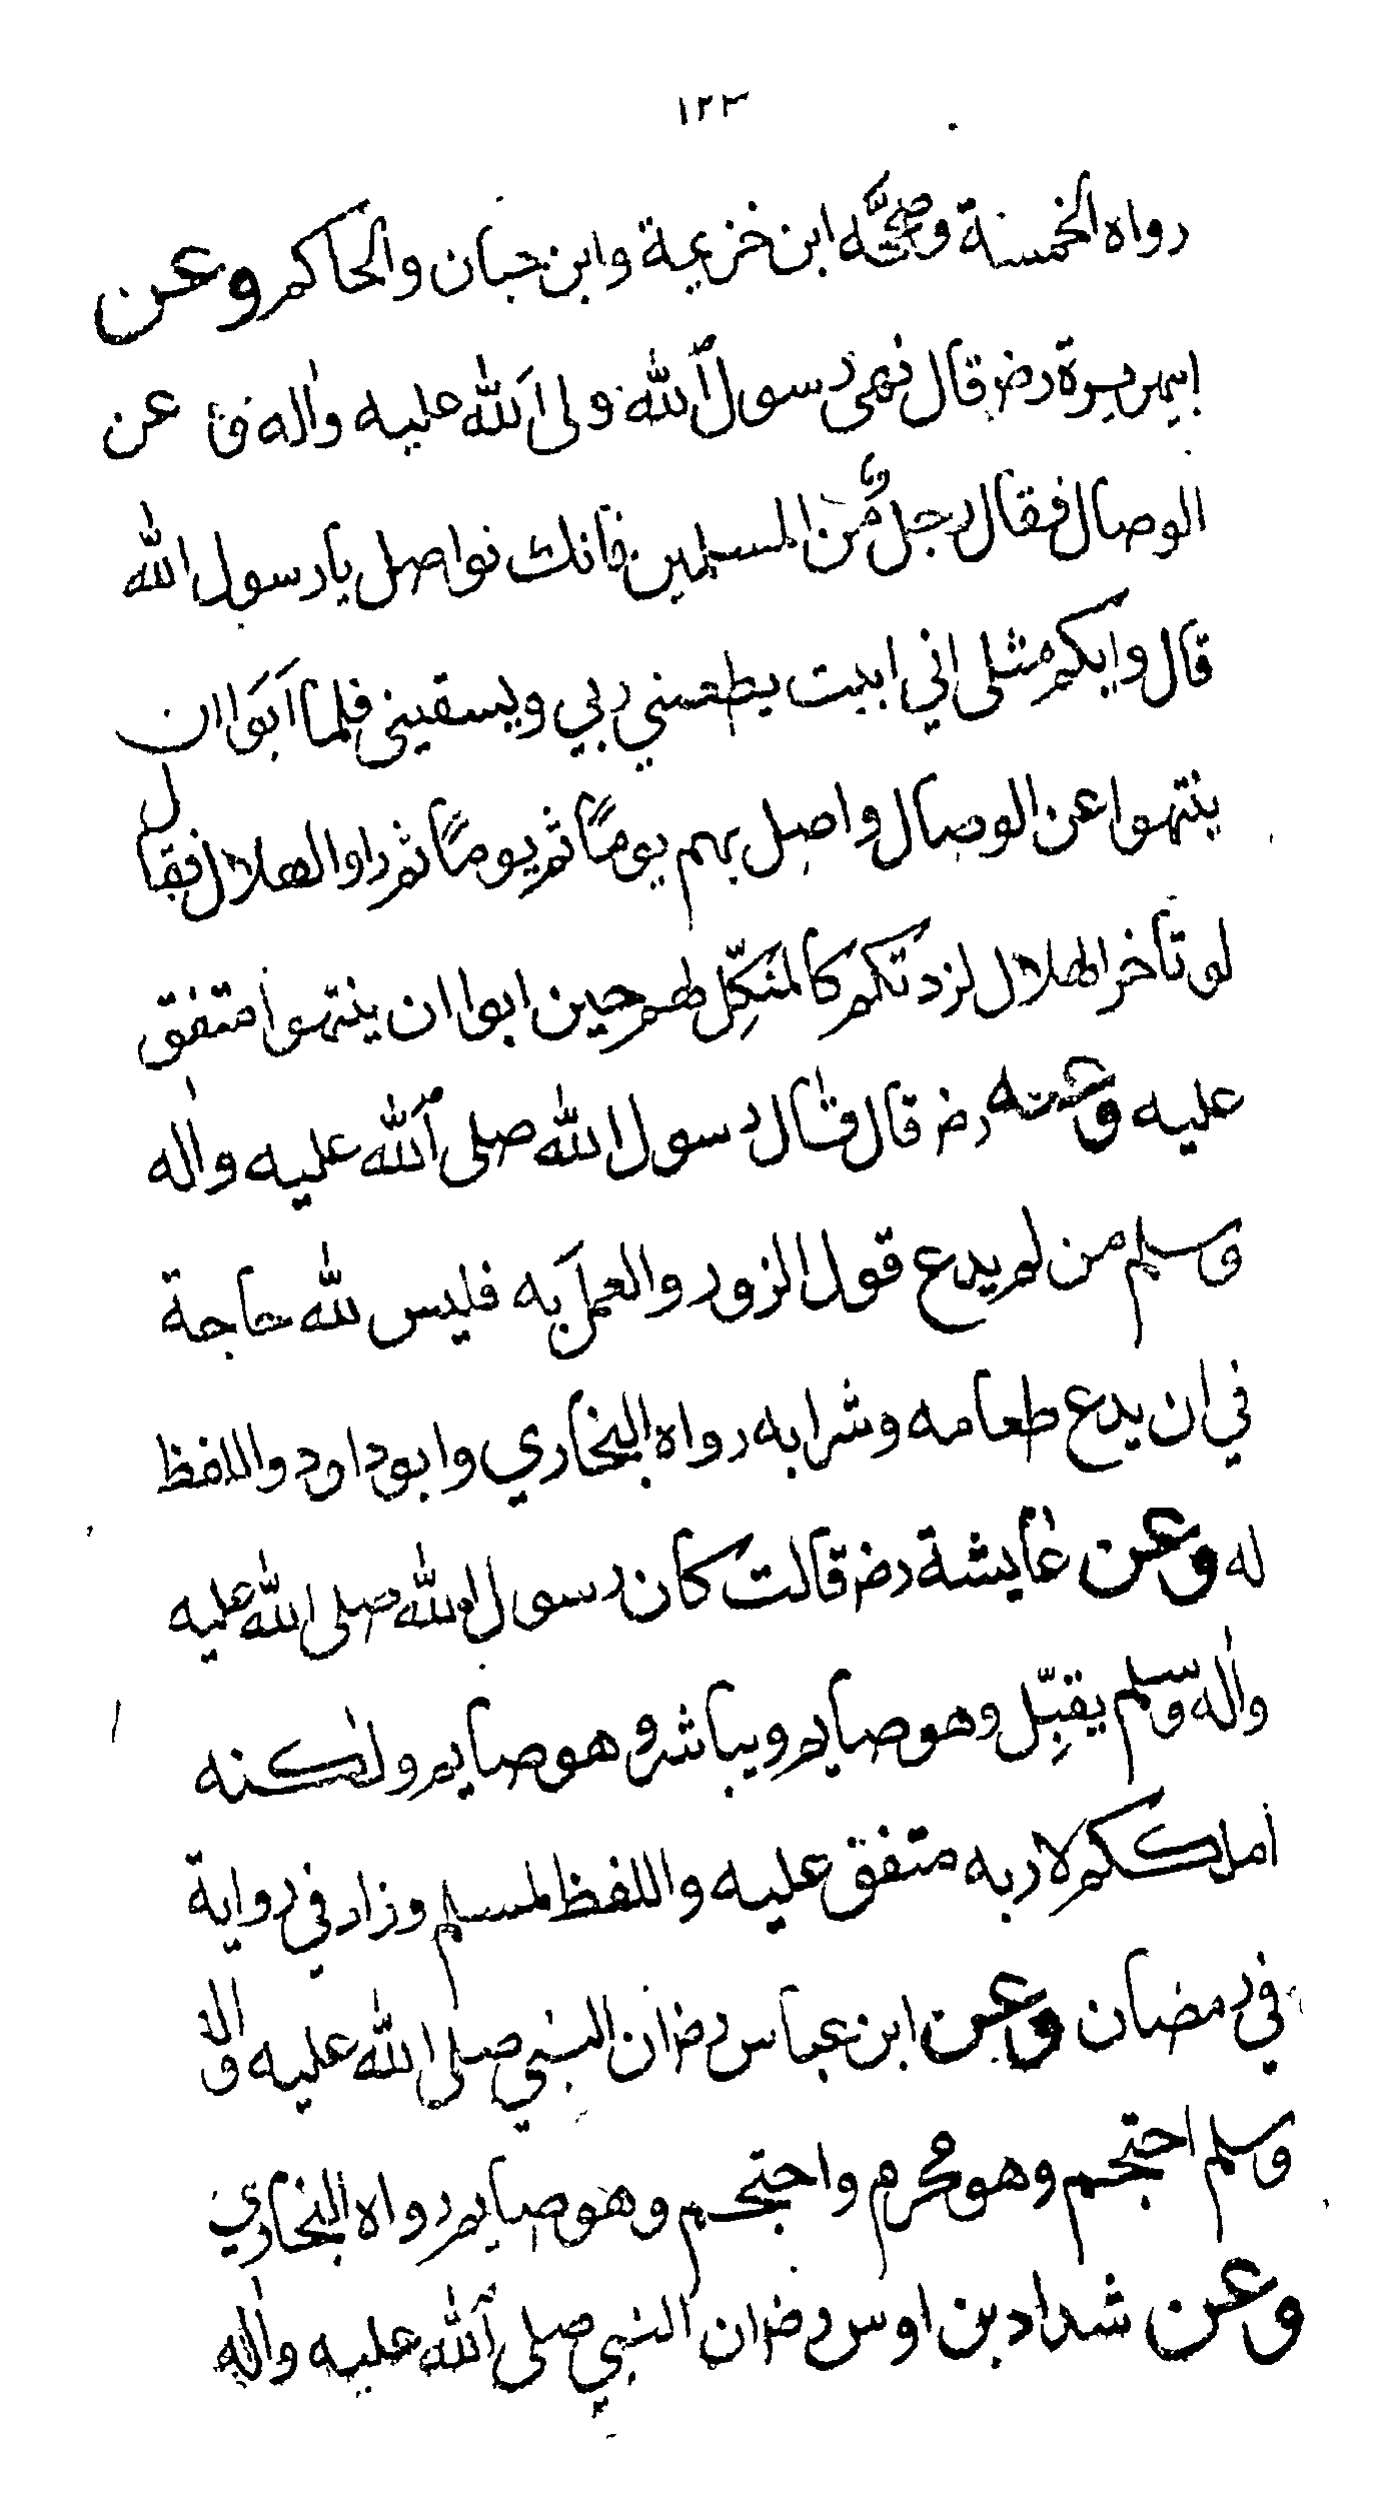 ١٢٣
رواه الخمسة وصححه ابن خزيمة وابن حبان والحاكم وعن
ابيهريرة رضـ قال نهى رسول الله صلى الله عليه واله عن
الوصال فقال رجل من المسلمين فانك تواصل يا رسول الله
قال وايكم مثلى اني ابيت يطعمني ربي ويسقيني فلما اَبَوَا ان
ينتهوا عن الوصال واصل بهم يومًا ثم يومًا ثم راوا الهلال فقال
لو تأخر الهلال لزدتكم كالمنكِّل لهم حين ابوا ان ينتهوا متفق
عليه وعنه رضـ قال قال رسول الله صلى الله عليه واله
وسلم من لم يدع قول الزور والعمل به فليس لله حاجة
في ان يدع طعامه وشرابه رواه البخاري وابو داود واللفظ
له وعن عايشة رضـ قالت كان رسول الله صلى الله عليه
واله وسلم يقبِّل وهو صايم ويباشر وهو صايم ولكنه
املككم لاربه متفق عليه واللفظ لمسلم وزاد في رواية
في رمضان وعن ابن عباس رضـ ان النبي صلى الله عليه واله
وسلم احتجم وهو محرم واحتجم وهو صايم رواه البخاري
وعن شداد بن اوس رضـ ان النبي صلى الله عليه واله